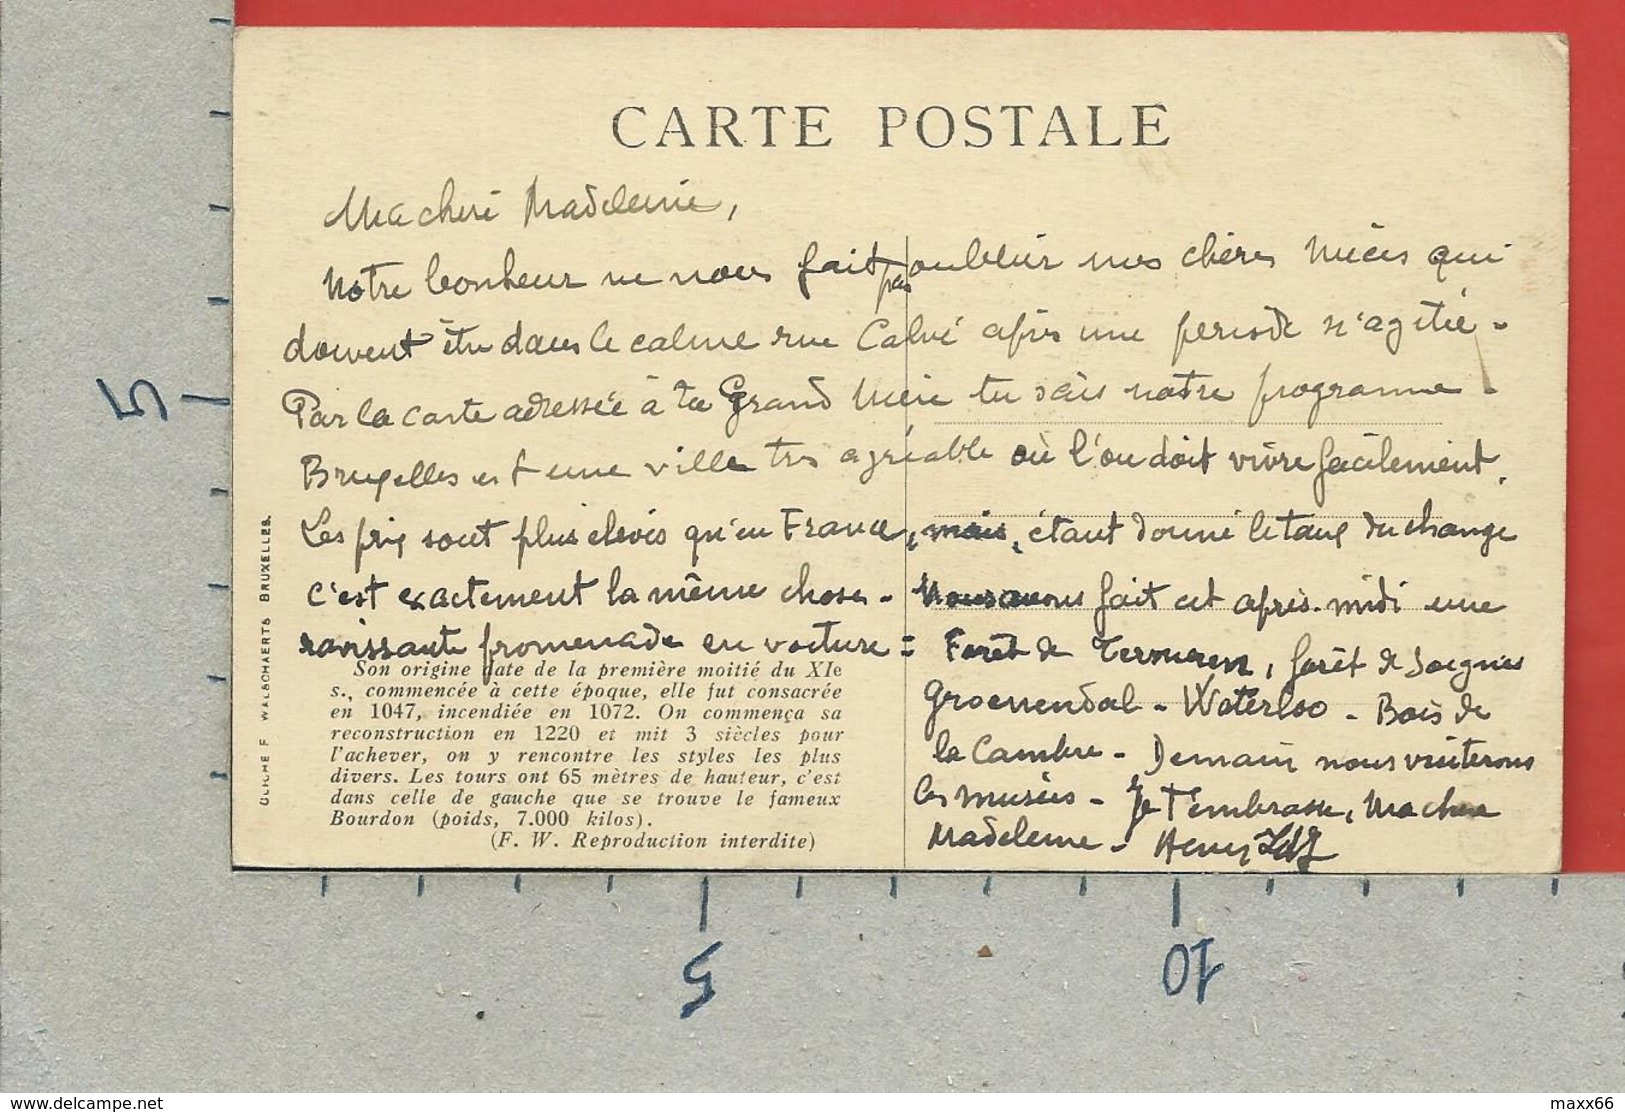 CARTE POSTALE
Ma chère Madeleine,
Notre bonheur ne nous fait pas oublier nos chères nièces qui
doivent être dans le calme rue Calvé après une période si agitée -
Par la carte adressée à ta Grand Mère tu sais notre programme -
Bruxelles est une ville très agréable où l'on doit vivre facilement.
Les prix sont plus élevés qu'en France, mais, étant donné le taux du change
c'est exactement la même chose - Nous avons fait cet après-midi une
ravissante promenade en voiture = Forêt de Tervuren, forêt de Soignes
Groenendal - Waterloo - Bois de
la Cambre - Demain nous visiterons
les musées - Je t'embrasse, Ma chère
Madeleine - Henry
Son origine date de la première moitié du XIe
s., commencée à cette époque, elle fut consacrée
en 1047, incendiée en 1072. On commença sa
reconstruction en 1220 et mit 3 siècles pour
l'achever, on y rencontre les styles les plus
divers. Les tours ont 65 mètres de hauteur, c'est
dans celle de gauche que se trouve le fameux
Bourdon (poids, 7.000 kilos).
(F. W. Reproduction interdite)
CLICHÉ F WALSCHAERTS BRUXELLES.
5
5
10
www.delcampe.net
maxx66